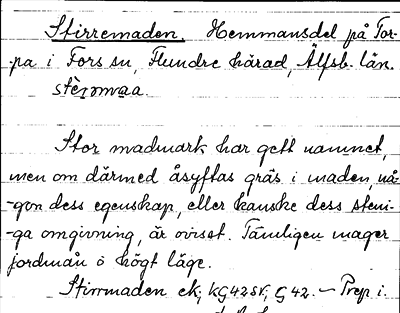 Stirremaden, Hemmansdel på Tor-
-pa i Fors sn, Flundre härad, Älfsb. län.
Stor madmark har gett namnet,
men om därmed åsyftas gräs i maden, nå-
-gon dess egenskap, eller kanske dess steni-
-ga omgivning, är ovisst. Tämligen mager
jordmån o högt läge.
Stirrmaden ek; KG 42 SV; G 42. — Prep i.